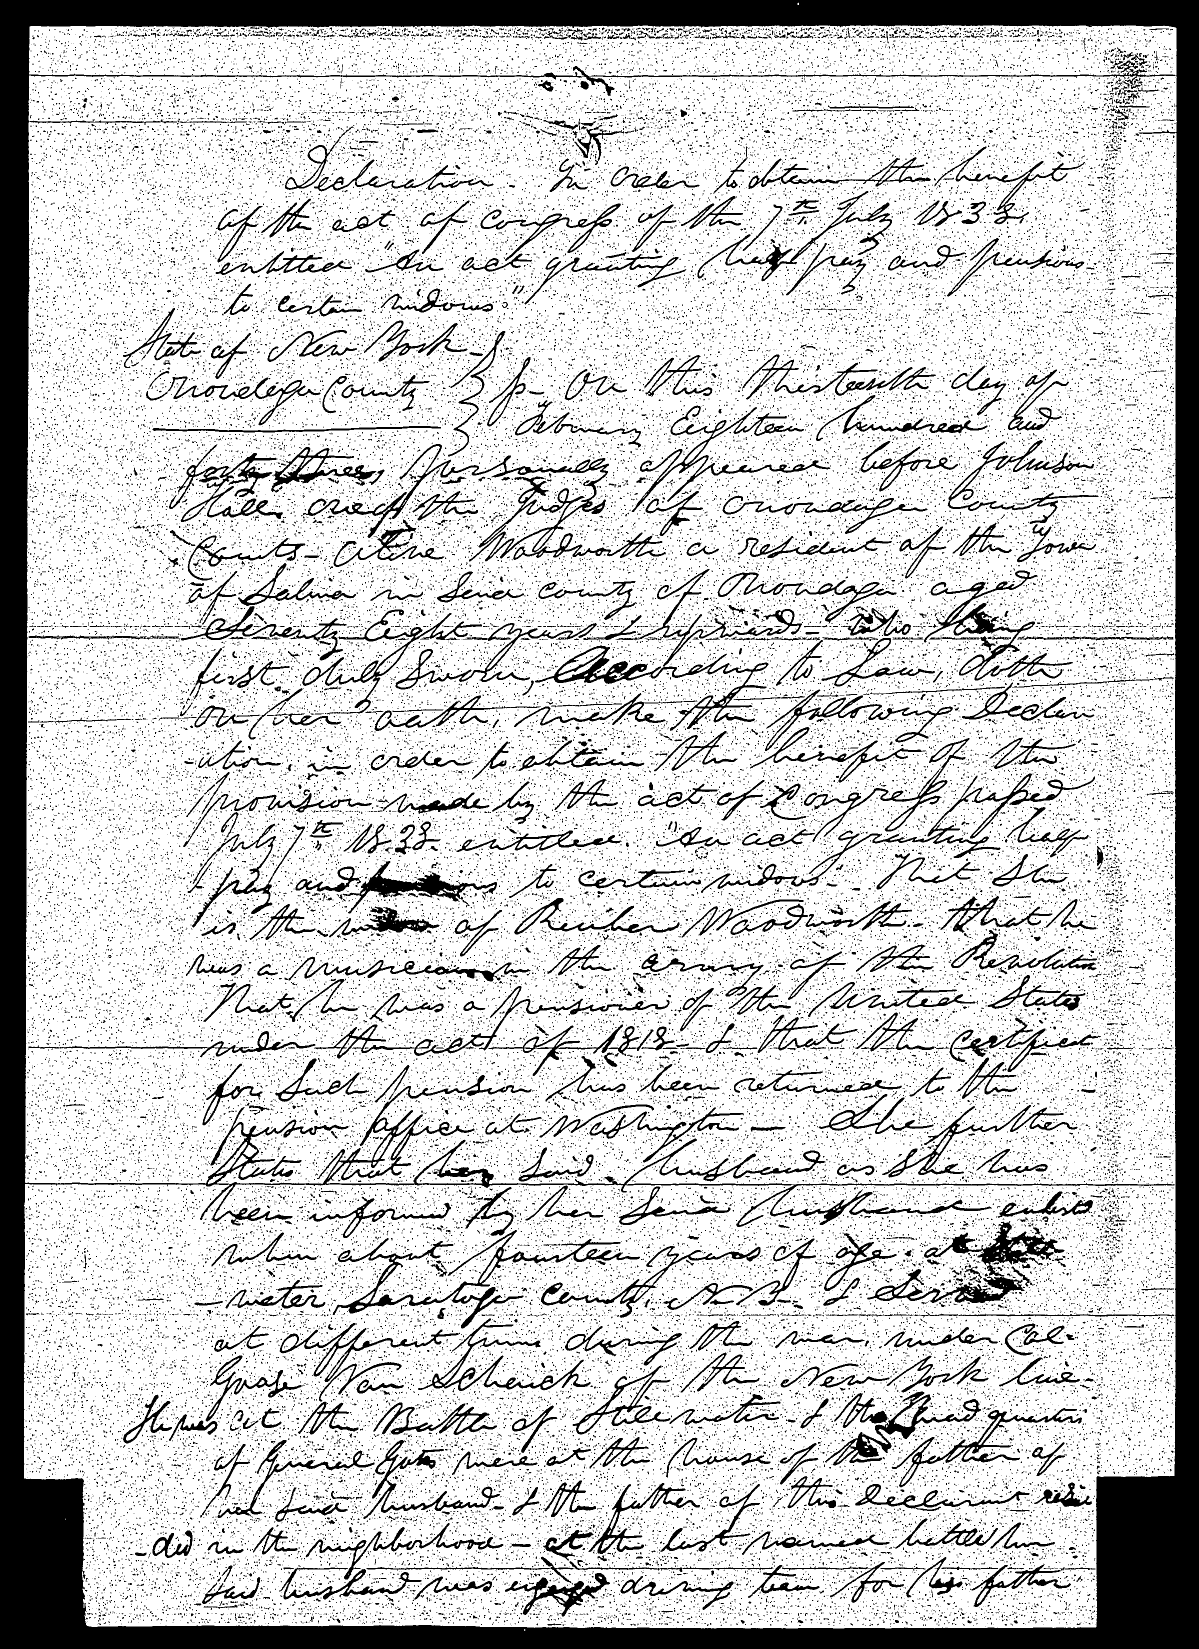 Declaration. In order to obtain the benefit
of the act of congress of the 7th July 1838.
entitled "An act granting half pay and pensions
to certain widows."
State of New York
Onondaga County } ss- On this thirteenth day of
February Eighteen hundred and
forty three, personally appeared before Johnson
Hall one of the Judges of Onondaga County
Courts - Woodworth a resident of the Town
of Salina in Said county of Onondaga aged
Seventy Eight years & upwards - who being
first duly Sworn, According to Law, doth
on her oath, make the following Declar
-ation, in order to obtain the benefit of the
provision made by the act of Congress passed
July 7th 1838 entitled. "An act granting half
pay and pensions to certain widows". That She
is the widow of Reuben Woodworth - that he
was a musician in the army of the Revolution
That he was a pensioner of the United States
under the act of 1818 - & that the certificat
for Such pension has been returned to the
pension office at Washington - She further
States that her Said husband as She has
been informed by her Said husband enlisted
when about fourteen years of age at Still
-water Saratoga County, N.Y. & Served
at different times during the war, under Col-
Goose Van Schaick of the New York line-
He was at the Battle of Stillwater - & the Head quarters
of General Gates were at the house of the father of
her said husband - & the father of this declarant resi
-ded in the neighborhood - at the last named battle her
Said husband was engaged driving team for his father